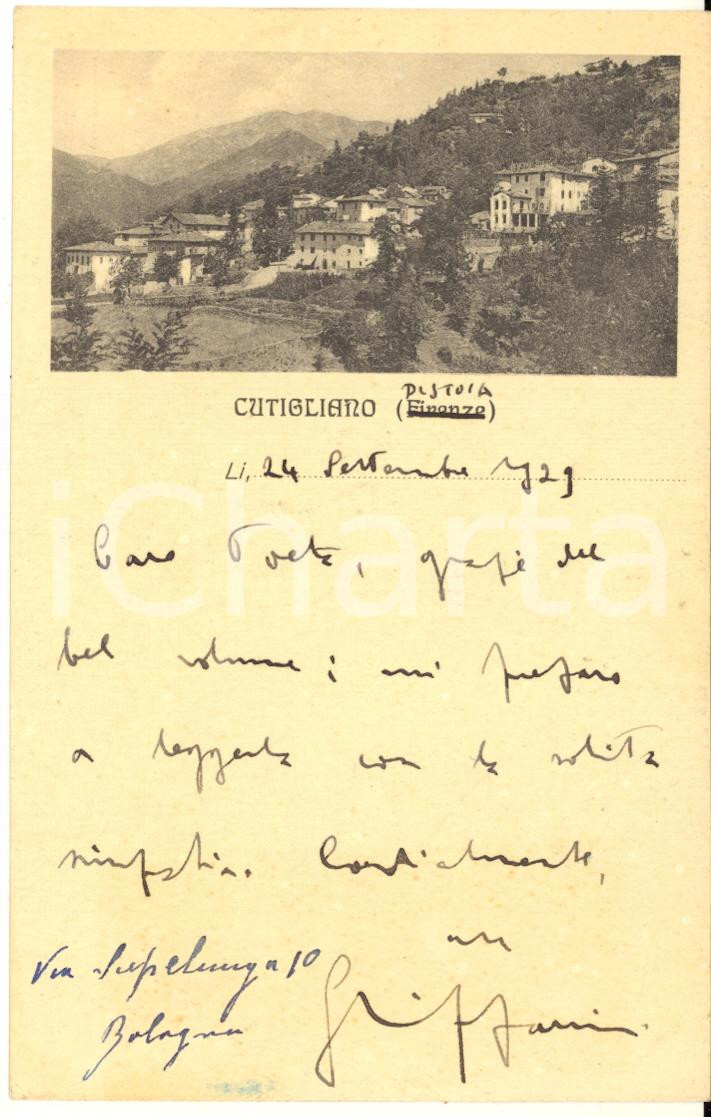 PISTOIA
CUTIGLIANO (Firenze)
Li, 24 Settembre 1929
iCharta
Caro Poeta, grazie del
bel volume; mi preparo
a leggerlo con la solita
simpatia. Cordialmente,
Via
Bologna